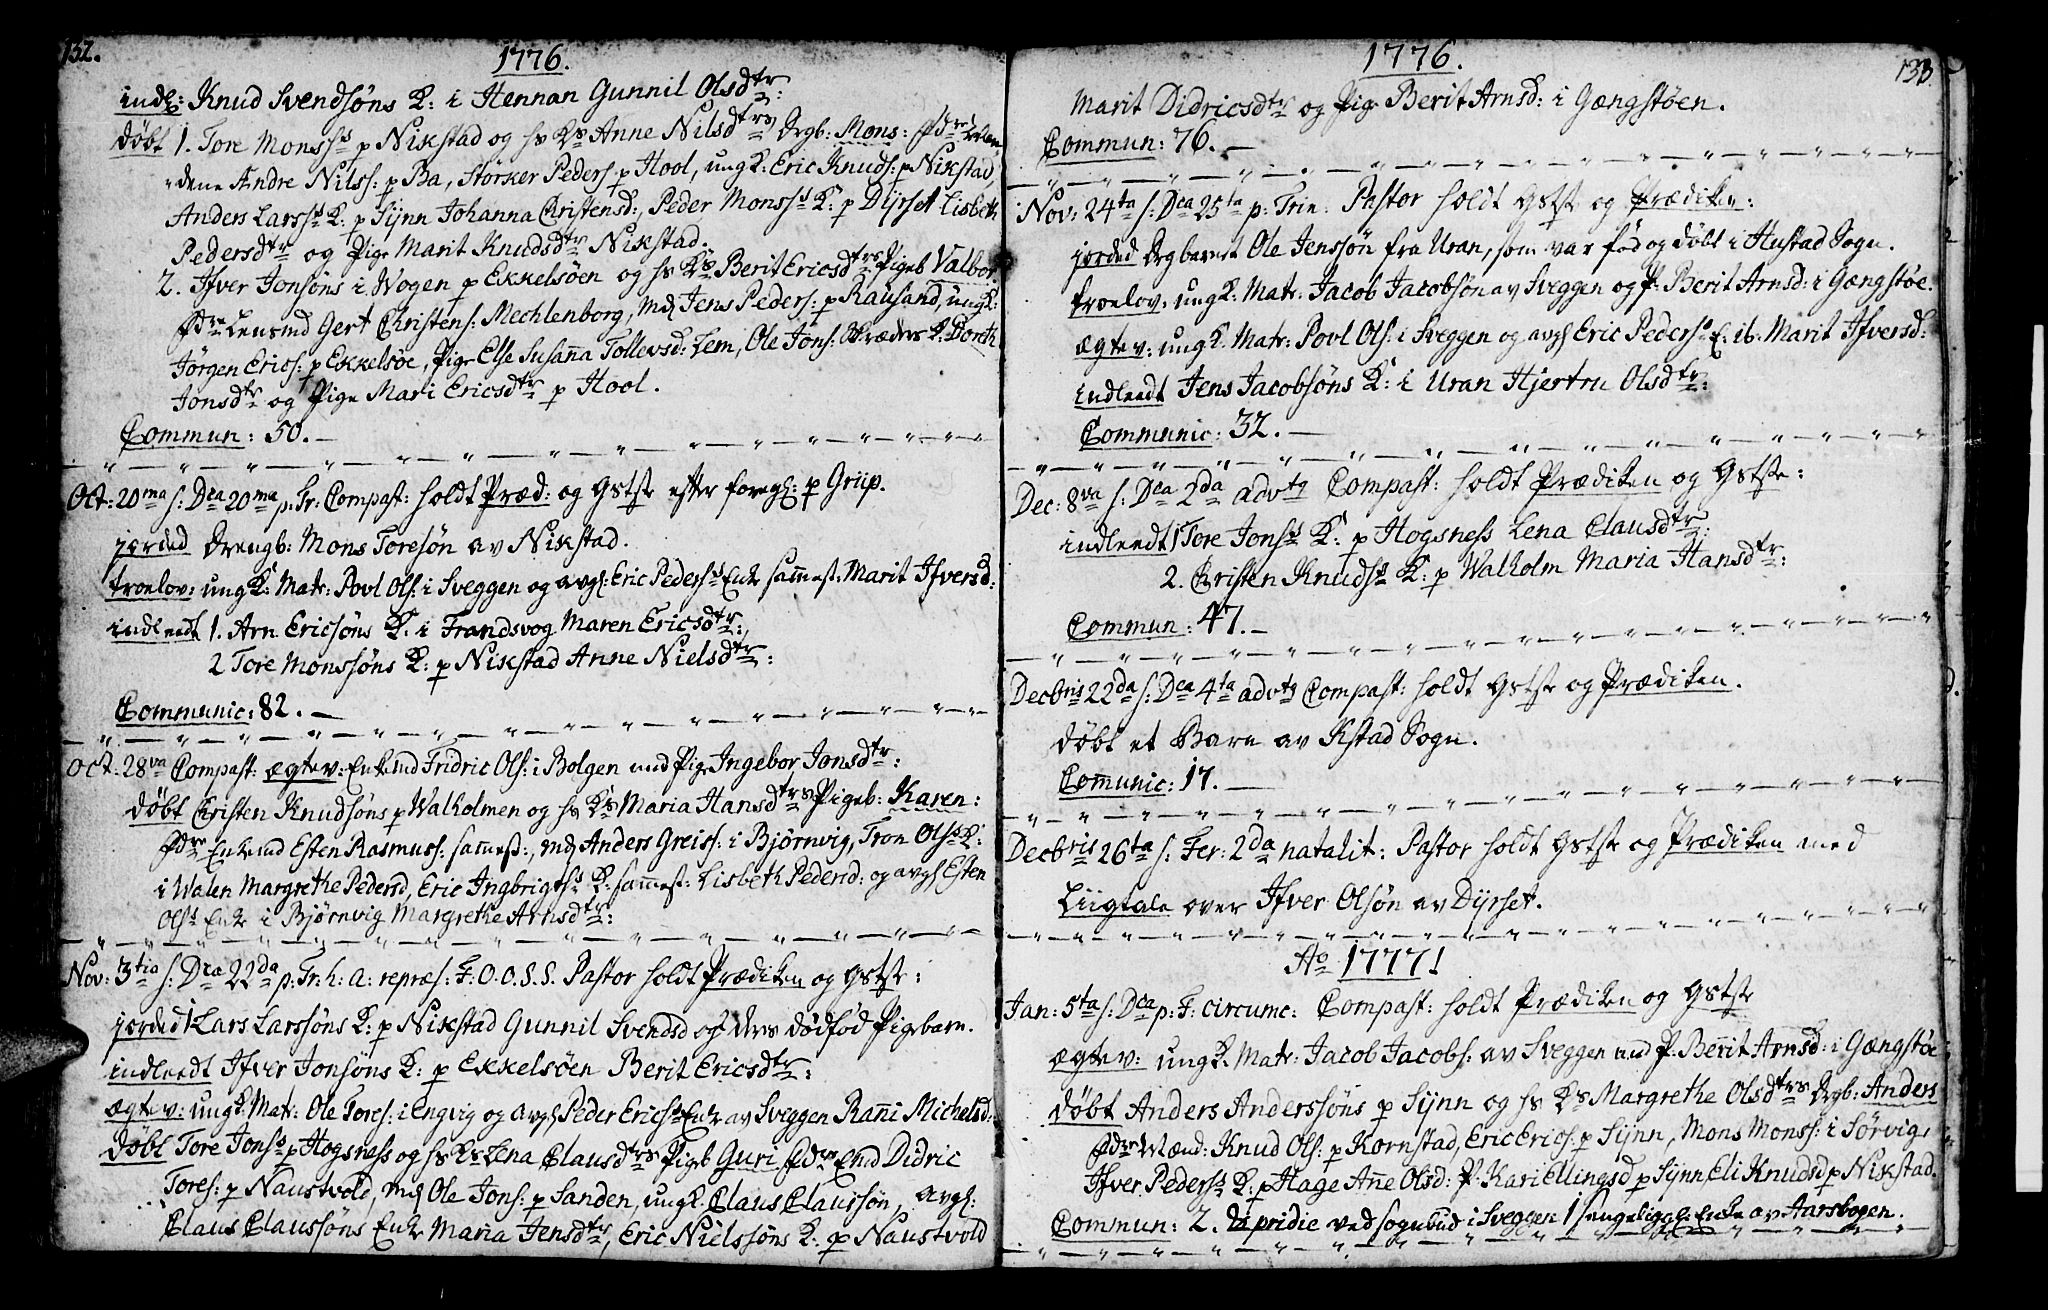 132.
1776.
indl: Knud Svendsøns K: i Hennan Gunnil Olsdtr:
døbt 1. Tore Monss: p Nikstad og hs Ks Anne Nilsdtrs Drgb: Mons: Fdre
dene Andre Nilss: p Ba, Størker Peders p Hool, ungK: Eric Knuds: p Nikstad,
Anders Larss K: p Synn Johanna Christensd:, Peder Monss K: p Dyrset Lisbet
Pedersdtr og Pige Marit Knudsdtr Nikstad.
2. Ifver Jonsøns i Wogen p Ekkelsøen og hs Ks Berit Ericsdtrs Pigeb Valbor
Fdre Lensmd Gert Christens: Mechlenborg, md Jens Peders: p Rausand, ungK:
Jørgen Erics: p Ekkelsøe, Pige Else Susaña Tollevsd: Lem, Ole Jons: K: Dorth
Jonsdtr og Pige Mari Ericsdtr p Hool.
Commun: 50.
Oct: 20ma s: Dca 20ma p: Tr: Compast: holdt Præd: og Gstste efter foregl: p Griip.
jorded Drengb: Mons Toresøn av Nikstad.
troelov: ungK: Matr: Povl Ols: i Sveggen og avgl: Eric Pederss Enke sam̃est: Marit Ifversd:
indleedt 1. Arn Ericsøns K: i Frandsvog Maren Ericsdtr:
2 Tore Monssøns K: p Nikstad Anne Nielsdtr:
Communic: 82.
Oct: 28va Compast: ægtev: Enkemd Fridric Ols: i Bolgen md Pige Ingebor Jonsdtr:
døbt Christen Knudsøns p Walholmen og hs Ks Maria Hansdtrs Pigeb: Karen:
Fdre Enkemd Esten Rasmuss: sam̃est:, md Anders Greiss: i Bjørnvig, Tron Olss K:
i Walen Margrethe Pedersd, Eric Ingbrigts K: sam̃est: Lisbeth Pedersd: og avgl Esten
Olss Enke i Bjørnvig Margrethe Arnsdtr:
Nov: 3tia s: Dca 22da p: Tr: h: a: repræs: F: O. O. S. S. Pastor holdt Prædiken og Gstste:
jorded 1 Lars Larssøns K: p Nikstad Gunnil Svendsd og ders dødfød Pigebarn.
indleedt Ifver Jonsøns K: p Ekkelsøen Berit Ericsdtr:
ægtev: ungK: Matr: Ole Tores: i Engvig og avgl Peder Ericss Enke av Sveggen Rañi Michelsd:
døbt Tore Jonss p Hogsness og hs Ks Lena Clausdtrs Pigeb Guri Fdre Emd Didric
Tores: p Naustvold, md Ole Jons: p Sanden, ungK: Claus Claussøn, avgl:
Claus Claussøns Enke Maria Jensdtr, Eric Nielssøns K: p Naustvold
1776.
133.
Marit Didricsdtr og Pige Berit Arnsd: i Gængstøen.
Commun: 76.
Nov: 24ta s: Dca 25ta p: Trin: Pastor holdt Gstste og Prædiken:
jorded Drgbarnet Ole Jenssøn fra Uran, som var fød og døbt i Hustad Sogn.
troelov: ungK: Matr: Jacob Jacobsøn av Sveggen og P: Berit Arnsd: i Gængstøe.
ægtev: ungK: Matr: Povl Ols: i Sveggen og avgl Eric Pederss E: ib. Marit Ifversd:
indleedt Jens Jacobsøns K: i Uran Hjertru Olsdtr:
Communic: 32.
Dec: 8va s: Dca 2da advts Compast: holdt Prædiken og Gstste:
indleedt 1 Tore Jonss K: p Hogsness Lena Clausdtr:
2. Christen Knudss K: p Walholm Maria Hansdtr:
Commun: 47.
Decbris 22da s: Dca 4ta advts Compast: holdt Gstste og Prædiken.
døbt et Barn av Kstad Sogn.
Com̃unic: 17.
Decbris 26ta s: Fer: 2da natalit: Pastor holdt Gstste og Prædiken med
Liigtale over Ifver Olsøn av Dyrset.
Ao 1777!
Jan: 5ta s: Dca p: F: circumc: Compast: holdt Prædiken og Gstste
ægtev: ungK: Matr: Jacob Jacobs: av Sveggen md P: Berit Arnsd: i Gængstøe
døbt Anders Anderssøns p Synn og hs Ks Margrethe Olsdtrs Drgb: Anders
Fdre Mænd: Knud Ols: p Kornstad, Eric Erics: p Synn, Mons Monss: i Sørvig,
Ifver Pederss K: p Hage Añe Olsd: P: Kari Ellingsd p Synn, Eli Knudsd p Nikstad.
Commun: 2. pridie ved sognebud i Sveggen 1 sengeligge: Enke av Aarsbogen.